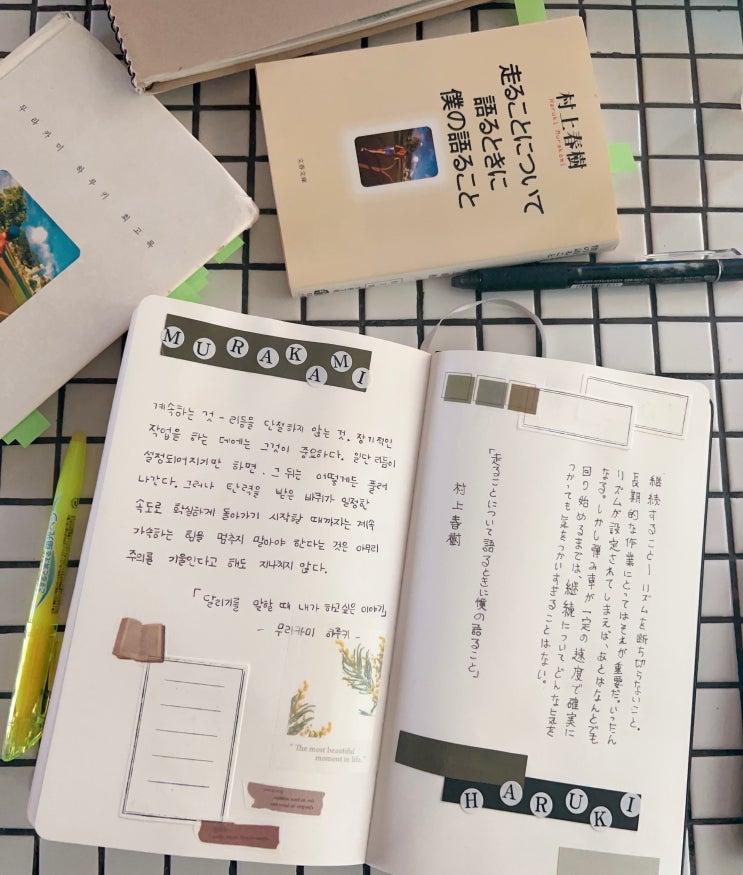 무라카미 하루키 회고록
村上春樹
Haruki Murakami
走ることについて
語るときに
僕の語ること
文春文庫
MURAKAMI
계속하는 것 - 리듬을 단절하지 않는 것. 장기적인
작업을 하는 데에는 그것이 중요하다. 일단 리듬이
설정되어지기만 하면, 그 뒤는 어떻게든 풀려
나간다. 그러나 탄력을 받은 바퀴가 일정한
속도로 확실하게 돌아가기 시작할 때까지는 계속
가속하는 힘을 멈추지 말아야 한다는 것은 아무리
주의를 기울인다고 해도 지나치지 않다.
「달리기를 말할 때 내가 하고싶은 이야기」
- 무라카미 하루키 -
"The most beautiful
moment in life."
継続すること ー リズムを断ち切らないこと。
長期的な作業にとってはそれが重要だ。いったん
リズムが設定されてしまえば、あとはなんとでも
なる。しかし弾み車が一定の速度で確実に
回り始めるまでは、継続についてどんなに気を
つかっても気をつかいすぎることはない。
「走ることについて語るときに僕の語ること」
村上春樹
HARUKI